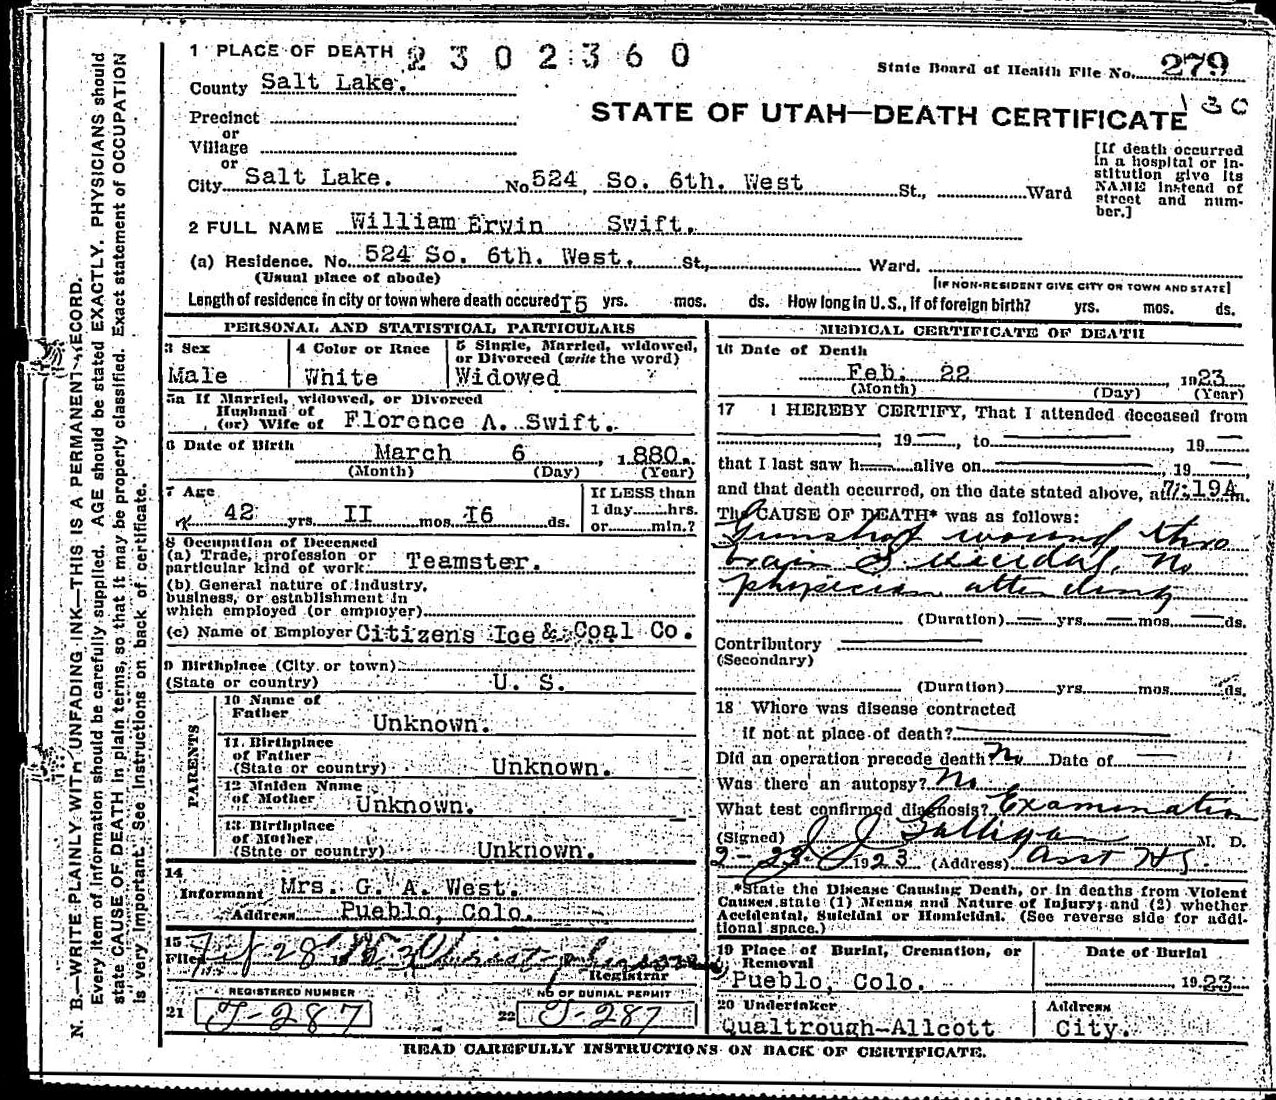 1 PLACE OF DEATH 2302360
State Board of Health File No. 279
County Salt Lake.
130
STATE OF UTAH—DEATH CERTIFICATE
Precinct
or
Village
or
City Salt Lake. No 524, So. 6th. West St., Ward
[If death occurred
in a hospital or in-
stitution give its
NAME instead of
street and num-
ber.]
2 FULL NAME William Erwin Swift.
(a) Residence. No. 524 So. 6th. West. St., Ward.
(Usual place of abode)
[IF NON-RESIDENT GIVE CITY OR TOWN AND STATE]
Length of residence in city or town where death occured 15 yrs. mos. ds. How long in U. S., if of foreign birth? yrs. mos. ds.
PERSONAL AND STATISTICAL PARTICULARS
3 Sex
Male
4 Color or Race
White
5 Single, Married, widowed,
or Divorced (write the word)
Widowed
5a If Married, widowed, or Divorced
Husband of
(or) Wife of Florence A. Swift.
6 Date of Birth
March 6, 1880.
(Month) (Day) (Year)
7 Age
42 yrs. II mos. 16 ds.
If LESS than
1 day hrs.
or min.?
8 Occupation of Deceased
(a) Trade, profession or
particular kind of work Teamster.
(b) General nature of industry,
business, or establishment in
which employed (or employer)
(c) Name of Employer Citizens Ice & Coal Co.
9 Birthplace (City or town)
(State or country) U. S.
PARENTS
10 Name of
Father
Unknown.
11 Birthplace
of Father
(State or country) Unknown.
12 Maiden Name
of Mother Unknown.
13 Birthplace
of Mother
(State or country) Unknown.
14
Informant Mrs. G. A. West.
Address Pueblo, Colo.
15
Filed Feb 28
Registrar
REGISTERED NUMBER
21 J-287
NO OF BURIAL PERMIT
22 J-287
MEDICAL CERTIFICATE OF DEATH
16 Date of Death
Feb. 22, 1923
(Month) (Day) (Year)
17 I HEREBY CERTIFY, That I attended deceased from
, 19 —, to , 19 —
that I last saw h— alive on , 19 —
and that death occurred, on the date stated above, at 7:19A m.
The CAUSE OF DEATH* was as follows:
Gunshot wound thro
brain Suicidal. No
physician attending
(Duration) — yrs. — mos. — ds.
Contributory
(Secondary)
(Duration) yrs. mos. ds.
18 Where was disease contracted
if not at place of death?
Did an operation precede death? No Date of —
Was there an autopsy? No.
What test confirmed diagnosis? Examination
(Signed) J J Galligan M. D.
2-23- 1923 (Address) Asst H
*State the Disease Causing Death, or in deaths from Violent
Causes state (1) Means and Nature of Injury; and (2) whether
Accidental, Suicidal or Homicidal. (See reverse side for addi-
tional space.)
19 Place of Burial, Cremation, or
Removal
Pueblo, Colo.
Date of Burial
, 1923
20 Undertaker
Qualtrough-Allcott
Address
City.
READ CAREFULLY INSTRUCTIONS ON BACK OF CERTIFICATE.
N. B.—WRITE PLAINLY WITH UNFADING INK—THIS IS A PERMANENT RECORD.
Every item of information should be carefully supplied. AGE should be stated EXACTLY. PHYSICIANS should
state CAUSE OF DEATH in plain terms, so that it may be properly classified. Exact statement of OCCUPATION
is very important. See instructions on back of certificate.